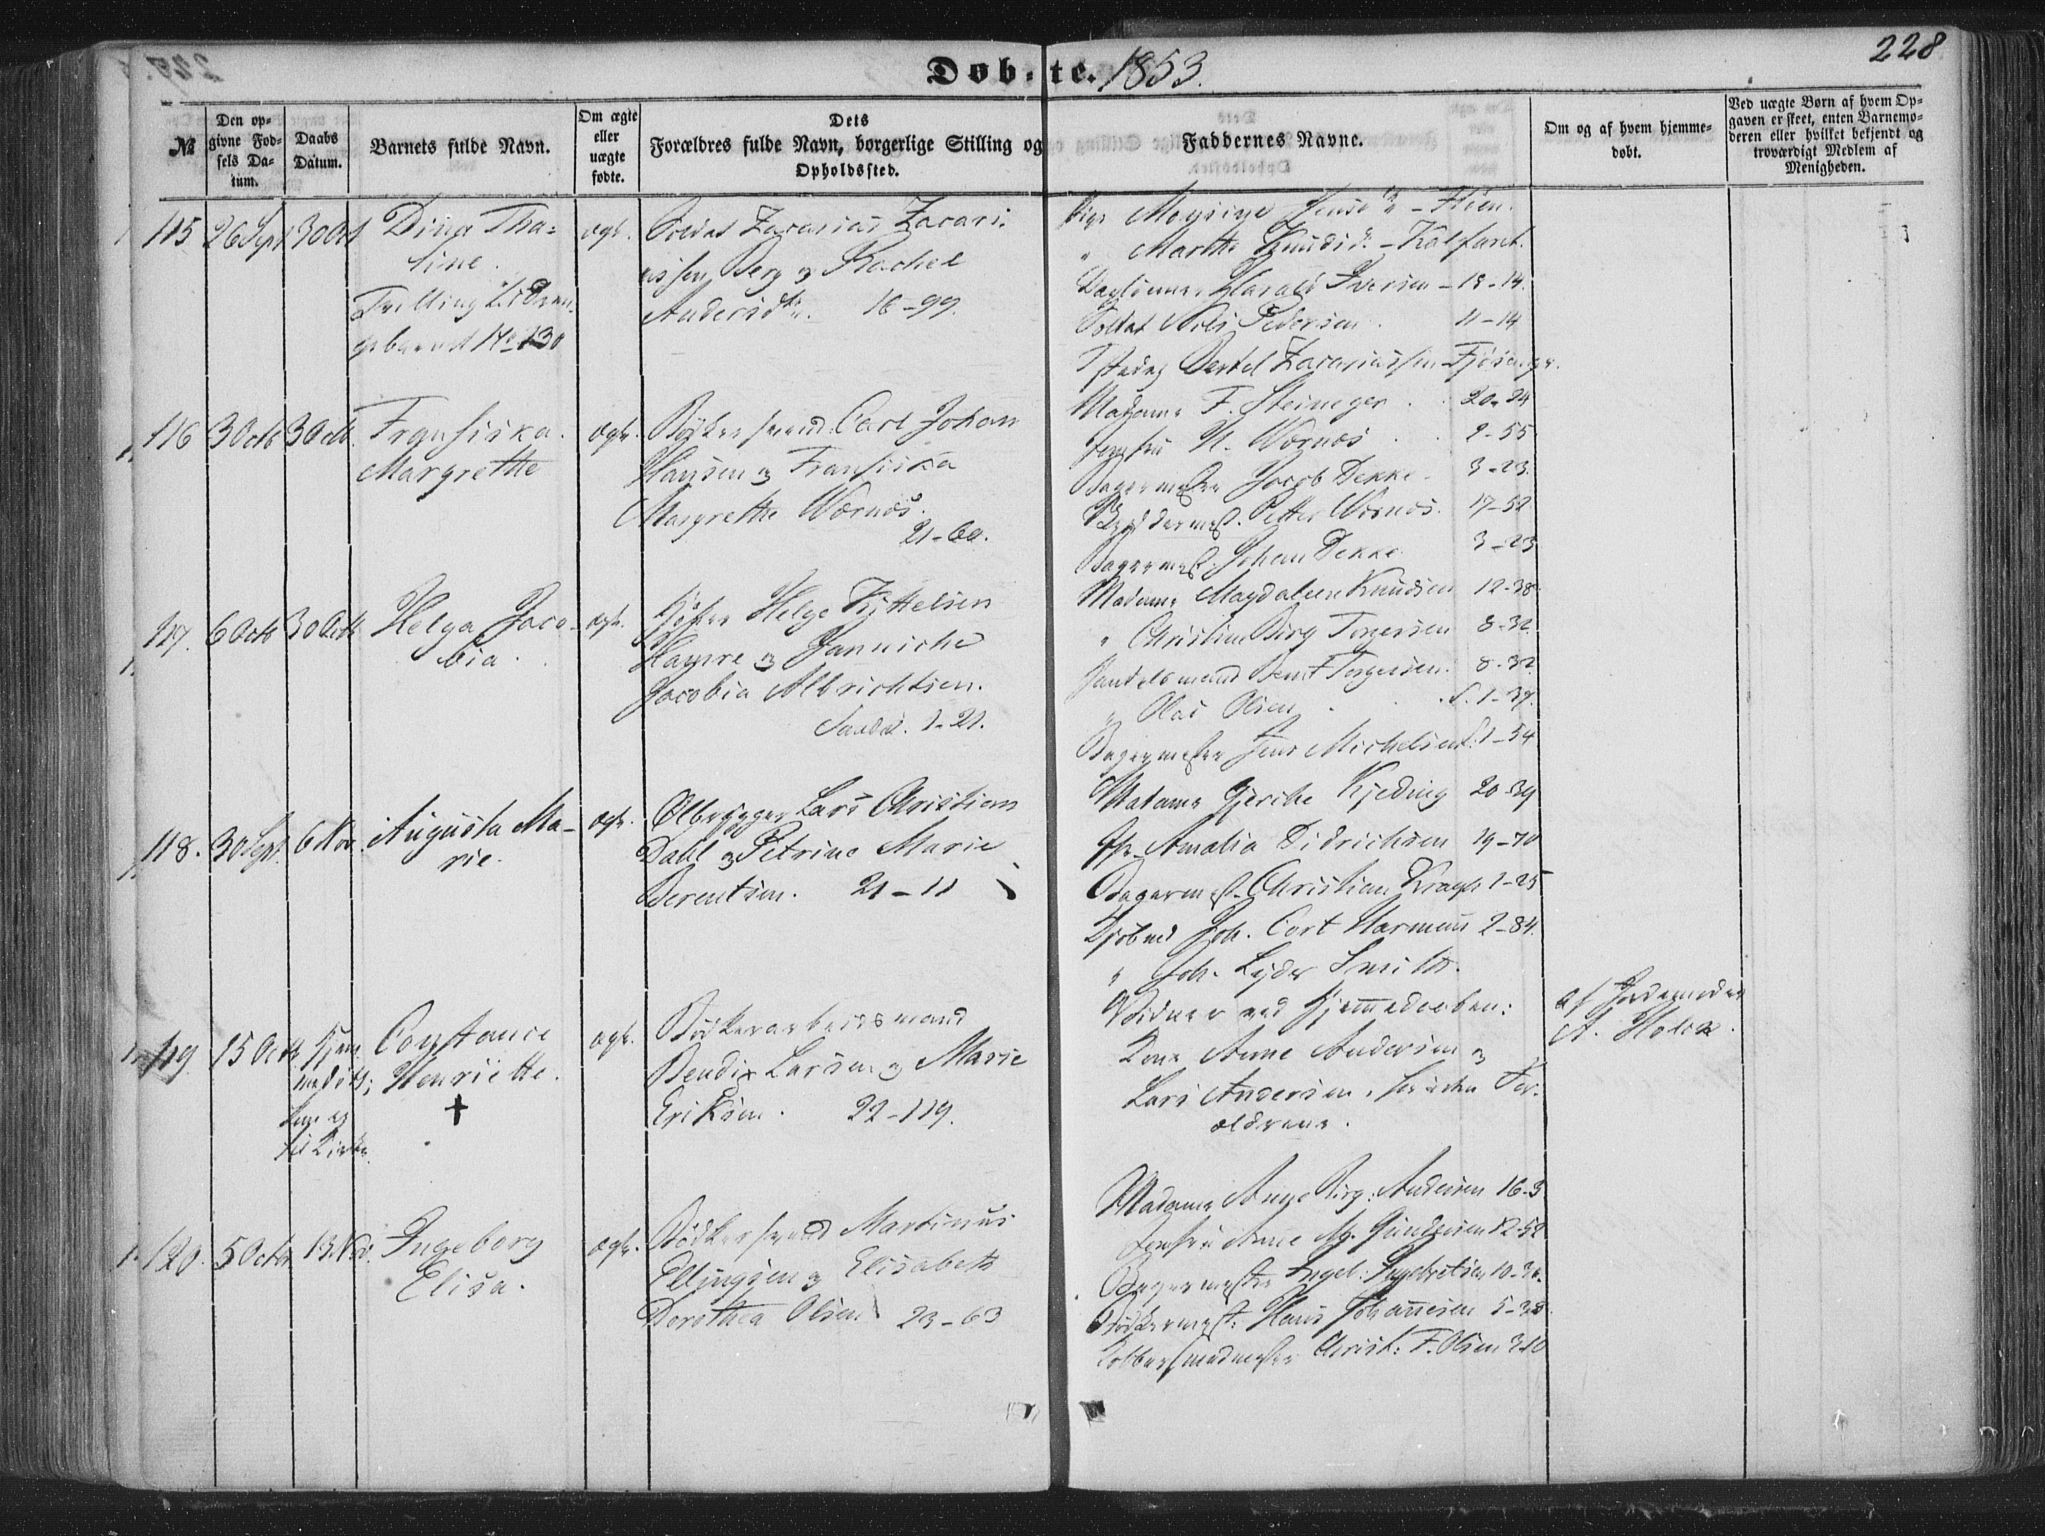 228
Døb-te. 1853.
№
Den opgivne Fødsels Datum.
Daabs Datum.
Barnets fulde Navn.
Om ægte eller uægte fødte.
Dets Forældres fulde Navn, borgerlige Stilling og Opholdssted.
Faddernes Navne.
Om og af hvem hjemmedøbt.
Ved uægte Børn af hvem Opgaven er skeet, enten Barnemoderen eller hvilket bekjendt og troværdigt Medlem af Menigheden.
115 26 Sept 30 Oct Dina Tha-
line.
Tvilling
No 130
ægt. Soldat Zacarias Zacari-
assen Berg og Rachel
Andersd. 16-99.
Marthe Knudsd. - Kalfaret.
Harald Iversen - 13-14.
Soldat Nils Pedersen. 11-14
Bertel Zacariassen
116 3 Octb 30 Octb. Fransiska
Margrethe
ægt. Bødkersvend Carl Johan
Hansen og Fransiska
Margrethe Wernøs.
21-60.
Madame F. Steineger 20-24
Jomfru N. Wernøs 2-55
Bagermester Jacob Dekke. 3-23.
Petter Wernøs. 17-52
Bagermest. Johan Dekke 3-23
117. 6 Octb 30 Octb Helga Jaco-
bia.
ægt. Helge Kittelsen
Hamre og Jannicke
Jacobia Albrichtsen.
Sandv. 1-21.
Madame Magdalene Knudsen 12-38
" Christine Birg Torgersen 8-32
Handelsmand Bent Torgersen. 8-32
" Olai Olsen S. 1-37.
Bagermester Jens Michelsen S. 1-54
118. 30 Sept. 6 Nov. Augusta Ma-
rie.
ægt. Ølbrygger Lars Christian
Dahl og Petrine Marie
Berentsen. 21-11
Madame Gjerthe Kjeding 20-39
Amalia Didrichsen 19-70
Bagermest. Christian Krogh 1-25
Joh. Cort Harmens 2-84.
" Joh. Lyder Smith.
119. 15 Octb Hjem-
medøbt;
til Kirke.
Constance
Henriette.
+
ægt. Bødkerarbeidsmand
Bendix Larsen og Marie
Eriksen. 22-119.
Vidner ved Hjemmedaaben:
Kone Anne Andersen og
Lars Andersen, foruden For-
ældrene.
af Jordemoder
A. Holck.
120. 5 Octbr 13. Nov. Ingeborg
Elisa.
ægt. Bødkersvend Martinus
Ellingsen og Elisabeth
Dorothea Olsen 23-63
Madame Anne Birg. Andersen 16-3
Jomfru Anne Mg. Gundersen 12-52
Bagermester Engel. Ingebretsen 10-30
Bødkermest: Hans Johannesen 5-38
Kobbersmedmester Christ: F. Olsen 3-10